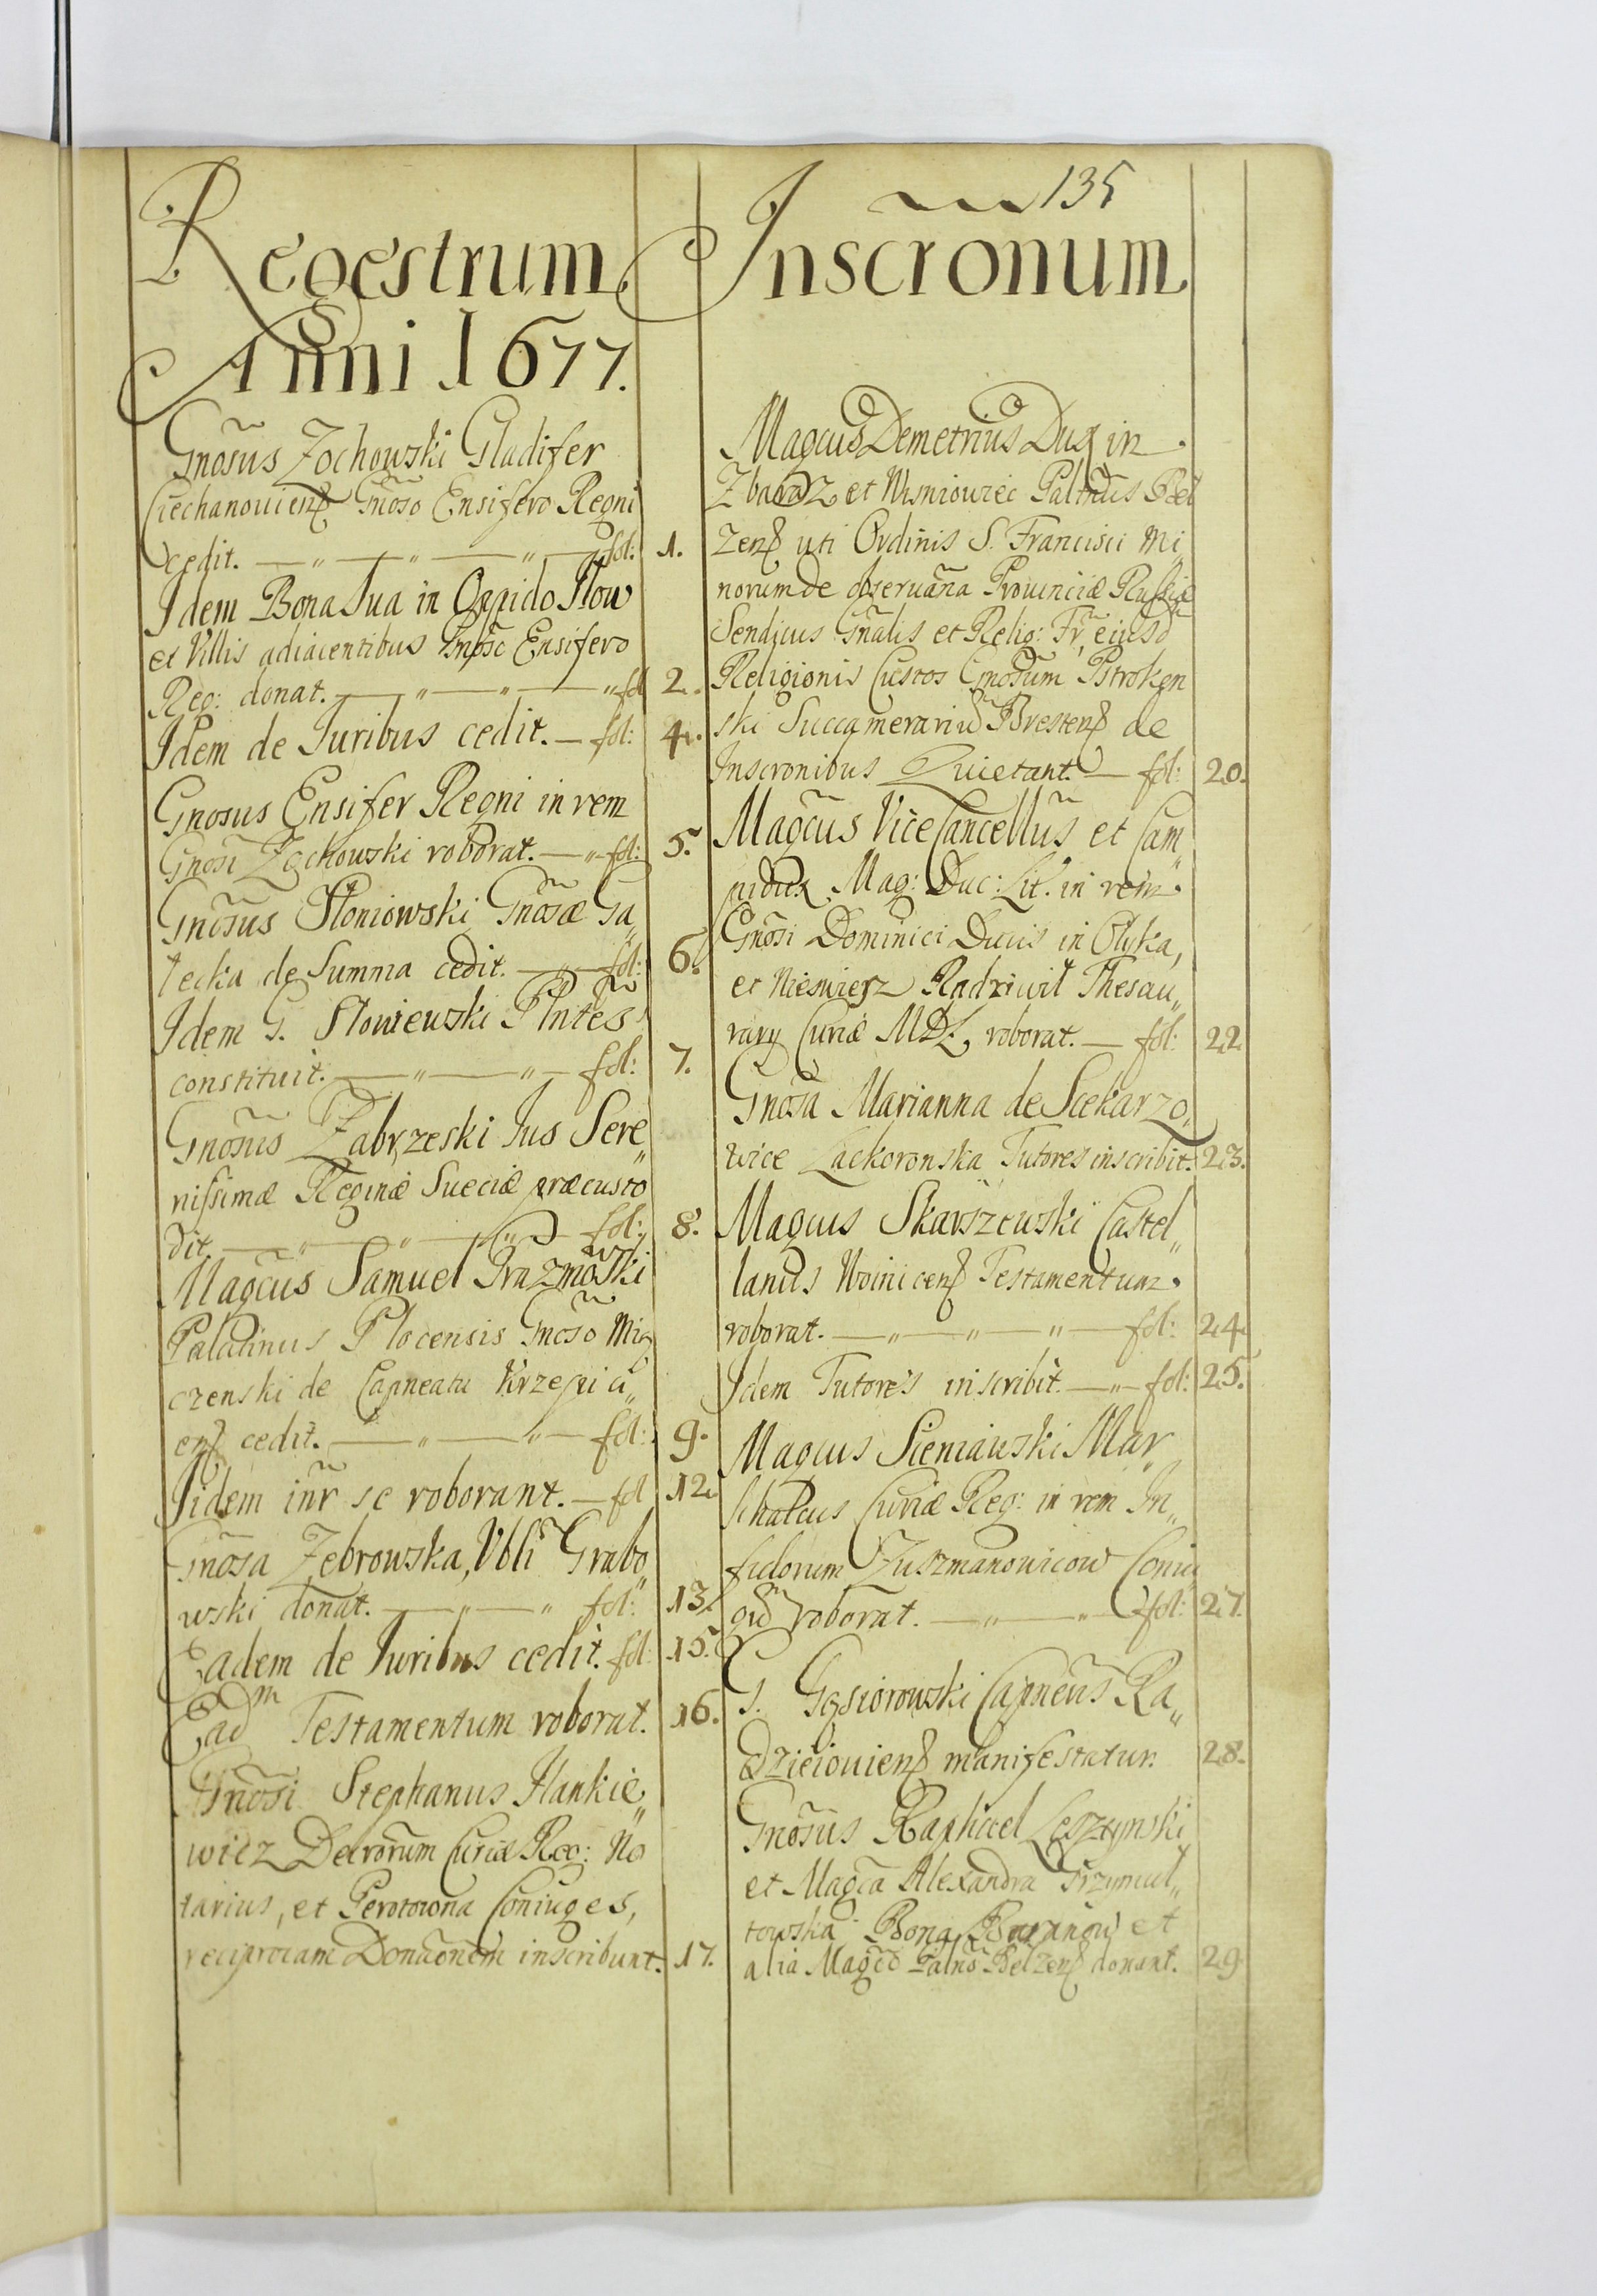 135
Regestrum Inscronum
Anni 1677.
Gnosus Zochowski Gladifer
Ciechanouiens Gnoso Ensifero Regni
cedit. fol: 1.
Idem Bona Sua in Oppido Iłow
et Villis adiacentibus Ensifero
Reg: donat. fol 2.
Idem de Iuribus cedit. fol: 4.
Gnosus Ensifer Regni in rem
Gnosi Zochowski roborat. fol: 5.
Gnosus Słoniowski Gnosæ Ga„
łecka de Summa cedit. fol: 6.
Idem G. Słoniewski Plntes
constituit. fol: 7.
Gnosus Zabrzeski Ius Sere„
nissimæ Reginæ Sueciæ præcusto
dit. fol: 8.
Magcus Samuel Prazmowski
Palatinus Plocensis Gnoso Mią
czenski de Capneatu Krzepici„
ens cedit. fol: 9.
Iidem inr se roborant. fol 12
Gnosa Zebrowska, Vbli Grabo„
wski donat. fol: 13.
Eadem de Iuribus cedit. fol: 15.
Eadm Testamentum roborat. 16.
Gnosi Stephanus Hankie„
wicz Decrorum Curiæ Reg: No
tarius, et Coniuges,
reciprocam Donaonem inscribunt. 17.
Magcus Demetrius Dux in
Zbaraz et Wisniowiec Paltnus Bel
zens uti Ordinis S. Francisci Mi
norum de obseruana Prouinciæ Russiæ
Sendicus Gnalis et Relig: Fr, eiusd
Religionis Custos Gnosum Pstroken
ski Succamerariu Brestens de
Inscronibus Quietant. fol: 20.
Magcus ViceCancellus et Cam„
pidux Mag: Duc: Lit. in rem
Gnosi Dominici Ducis in Olyka,
et Nieswierz Radziwił Thesau„
rary Curiæ MDL, roborat. fol: 22
Gnosa Marianna de Siekarzo„
wice Lackoronska Tutores inscribit. 23.
Magcus Skarszewski Castel„
lanus Woinicens Testamentum
roborat. fol: 24
Idem Tutores inscribit. fol: 25.
Magcus Sieniawski Mar„
schalcus Curiæ Reg: in rem In„
fidorum Zuszmanowicow Coniu
gu roborat. fol: 27.
G. Gąsiorowski Capneus Ra„
dzieiouiens manifestatur. 28.
Gnosus Raphael Leszczynski
et Magca Alexandra Przymuł„
towska Bona Baranow et
alia Magco Palno Belzens donant. 29